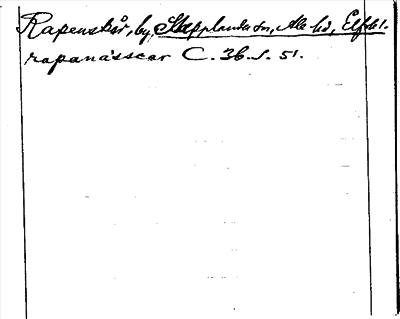 Rapenskår, by, Skepplanda sn, Ale hd, Elfsb l.
rapanásscar C. 36. s. 51.